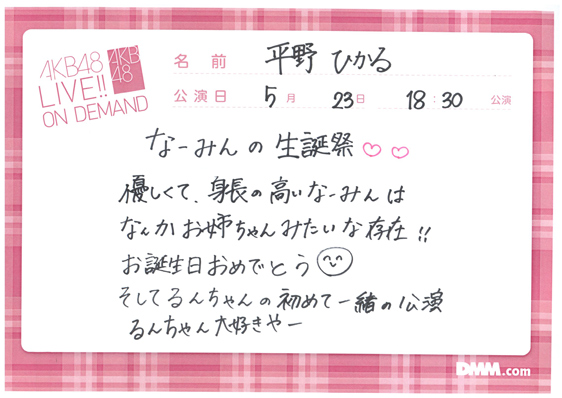 AKB48
LIVE!!
ON DEMAND
AKB
48
名前 平野 ひかる
公演日 5月 23日 18:30 公演
なーみんの生誕祭♡♡
優しくて、身長の高いなーみんは
なんかお姉ちゃんみたいな存在!!
お誕生日おめでとう
そしてるんちゃんの初めて一緒の公演
るんちゃん大好きやー
DMM.com